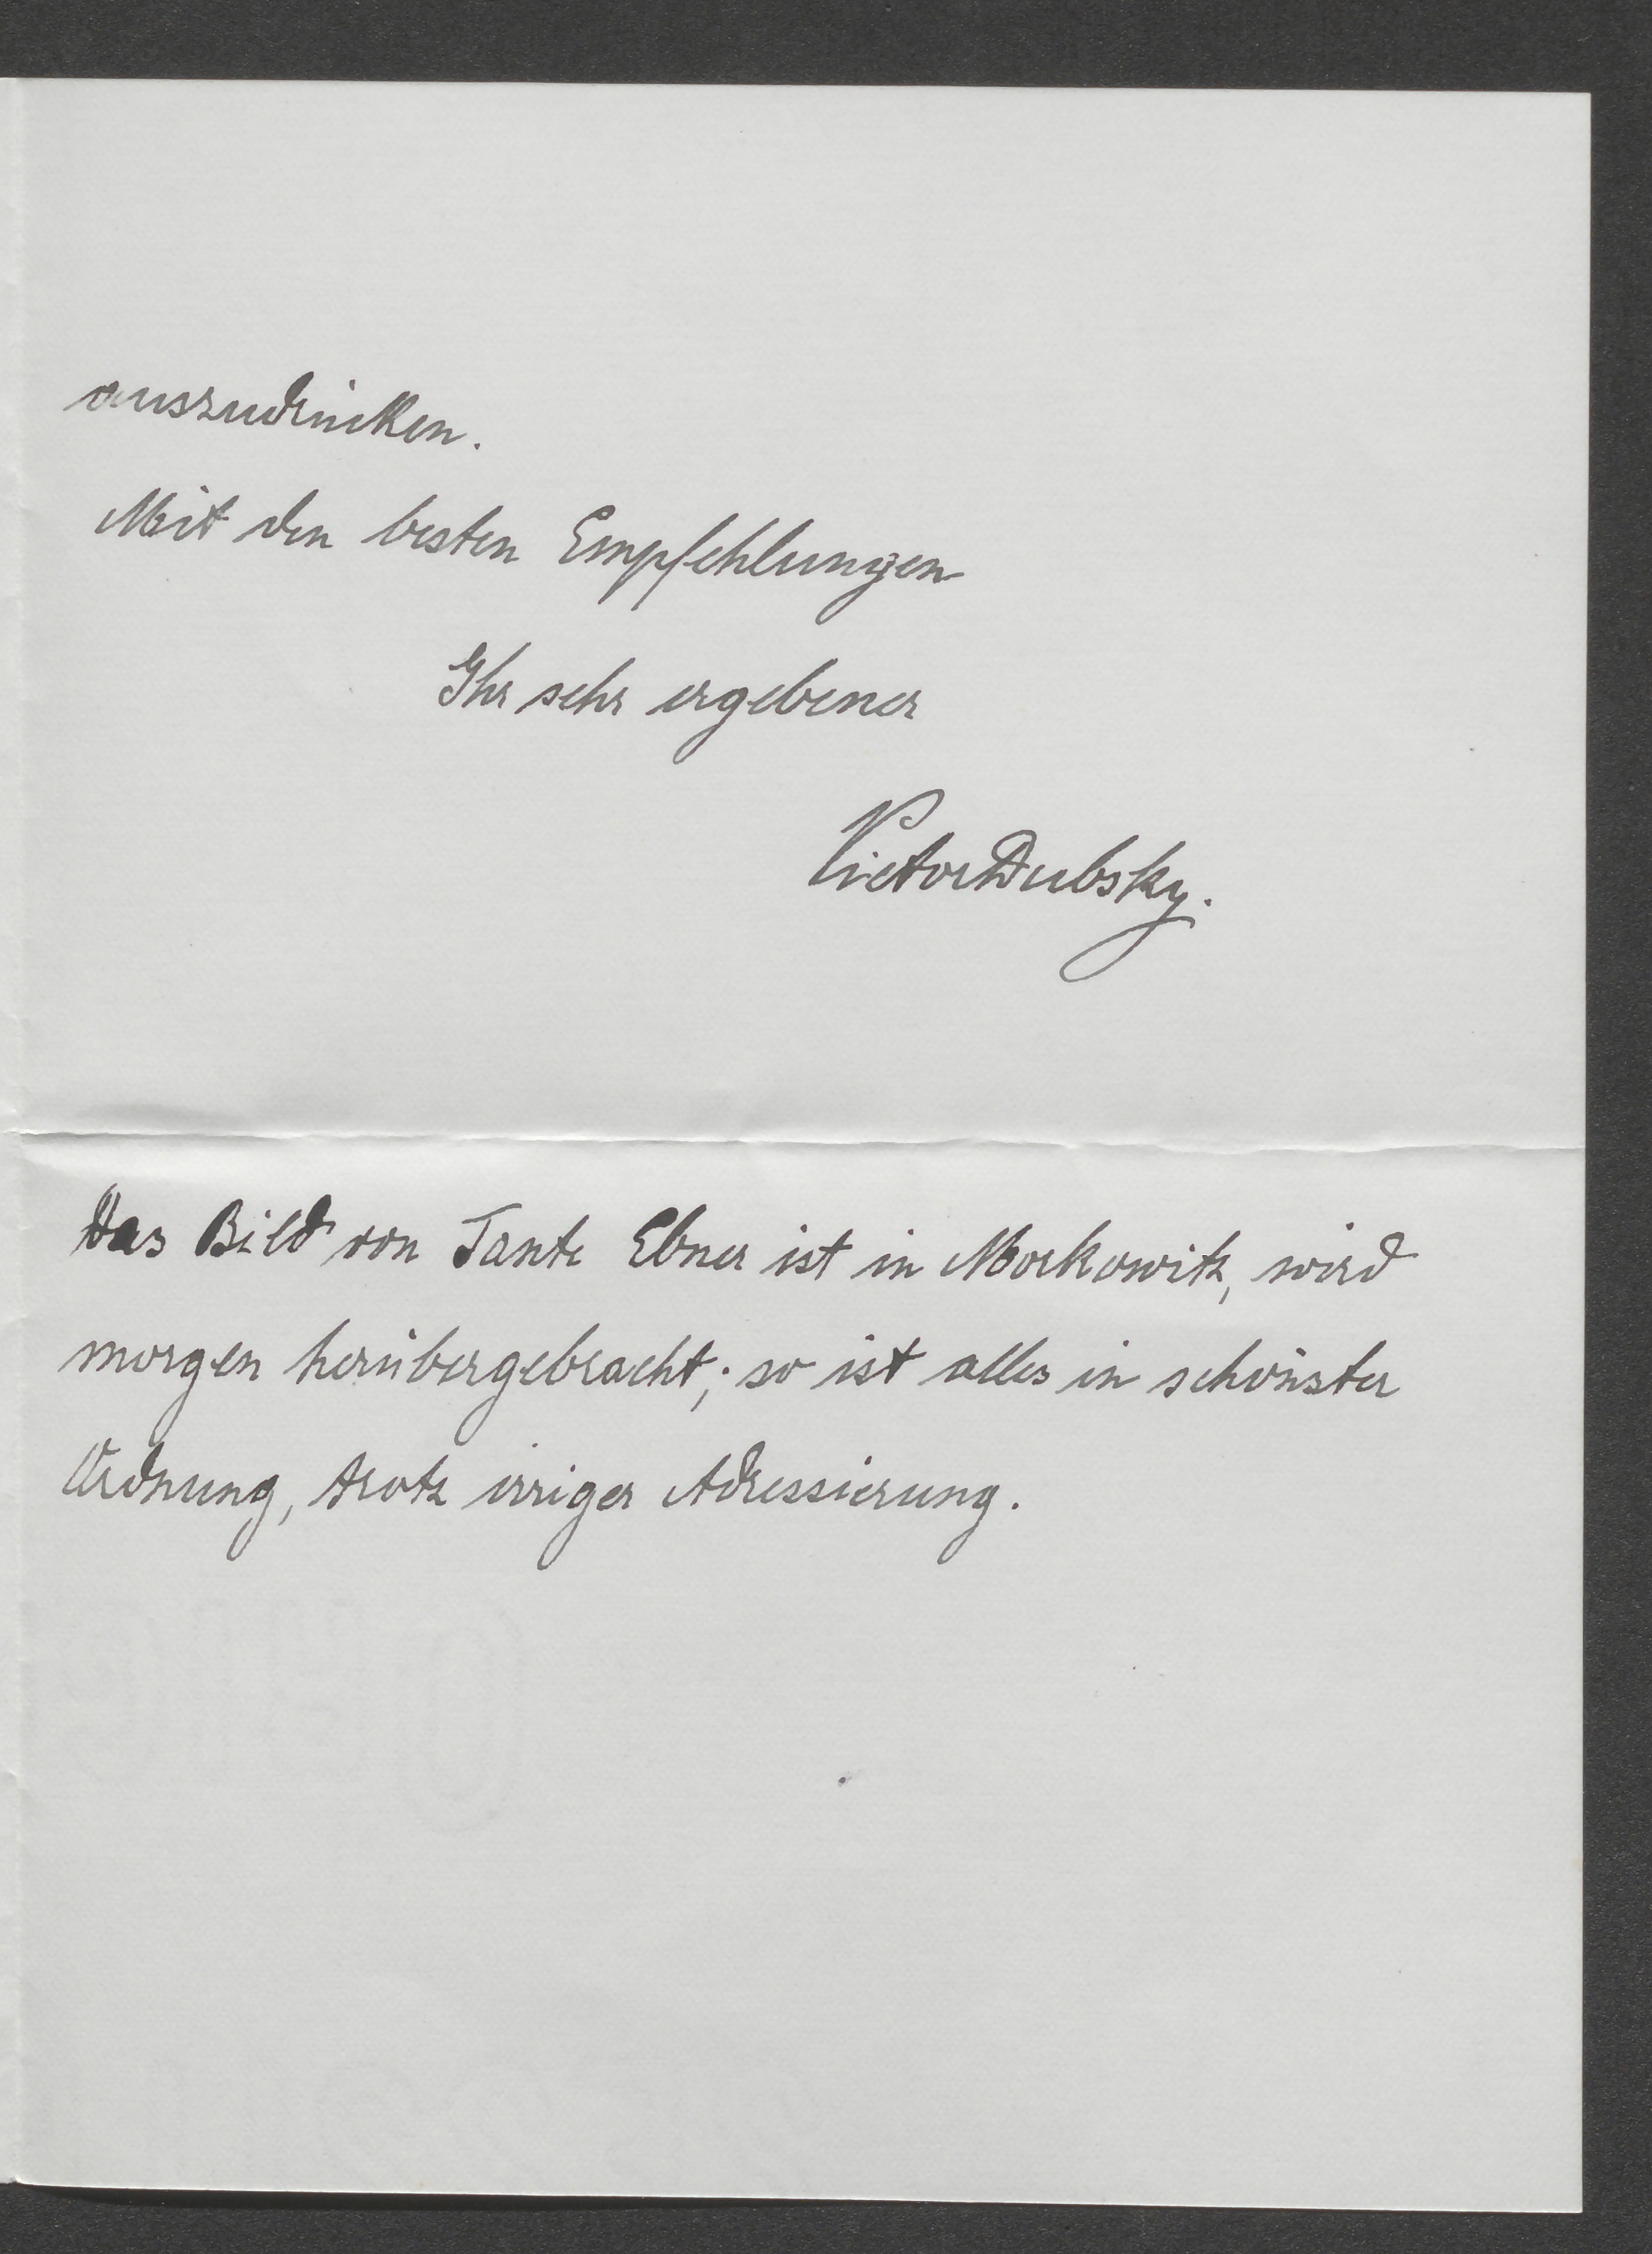 auszudrücken.
Mit den besten Empfehlungen
Ihr sehr ergebener
Victor Dubsky.
Das Bild von Tante Ebner ist in Morkowitz, wird
morgen herübergebracht; so ist alles in schönster
Ordnung, trotz irriger Adressierung.